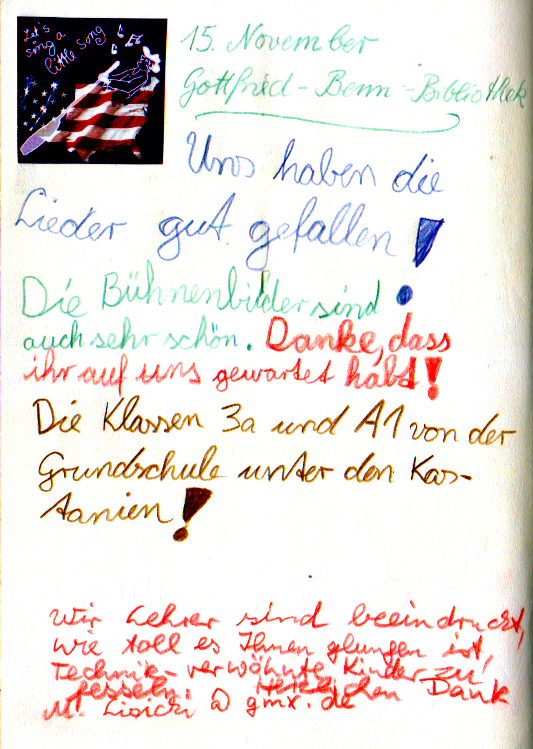 Let's
sing a
little song
15. November
Gottfried-Benn-Bibliothek
Uns haben die
Lieder gut gefallen!
Die Bühnenbilder sind
auch sehr schön. Danke, dass
ihr auf uns gewartet habt!
Die Klassen 3a und A1 von der
Grundschule unter den Kas-
tanien!
Wir Lehrer sind beeindruckt,
wie toll es Ihnen glungen ist,
Technik-verwöhnte Kinder zu
fesseln. Herzlichen Dank
M. Lisicki @ gmx.de